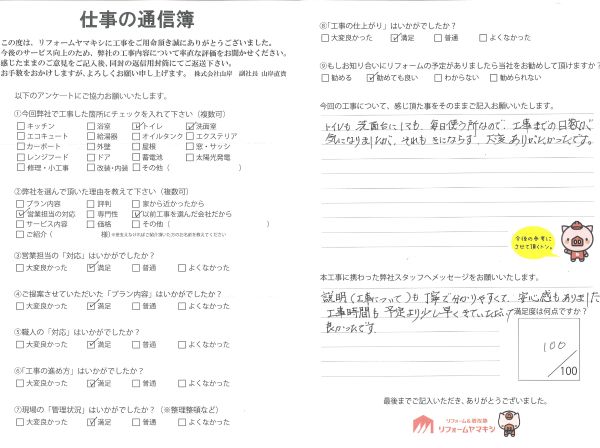 仕事の通信簿
この度は、リフォームヤマキシに工事をご用命頂き誠にありがとうございました。
今後のサービス向上のため、弊社の工事内容について率直な評価をお聞かせください。
感じたままのご意見をご記入後、同封の返信用封筒にてご返送下さい。
お手数をおかけしますが、よろしくお願い申し上げます。 株式会社山岸 副社長 山岸直貴
以下のアンケートにご協力お願いいたします。
①今回弊社で工事した箇所にチェックを入れて下さい（複数可）
□キッチン □浴室 ☑トイレ ☑洗面室
□エコキュート □給湯器 □オイルタンク □エクステリア
□カーポート □外壁 □屋根 □窓・サッシ
□レンジフード □ドア □蓄電池 □太陽光発電
□修理・小工事 □改装・内装 □その他（ ）
②弊社を選んで頂いた理由を教えて下さい（複数可）
□プラン内容 □評判 □家から近かったから
☑営業担当の対応 □専門性 ☑以前工事を選んだ会社だから
□サービス内容 □価格 □その他（ ）
□ご紹介（ 様）※差支えなければご紹介頂いた方のお名前を教えてください
③営業担当の「対応」はいかがでしたか？
□大変良かった ☑満足 □普通 □よくなかった
④ご提案させていただいた「プラン内容」はいかがでしたか？
□大変良かった ☑満足 □普通 □よくなかった
⑤職人の「対応」はいかがでしたか？
□大変良かった ☑満足 □普通 □よくなかった
⑥「工事の進め方」はいかがでしたか？
□大変良かった ☑満足 □普通 □よくなかった
⑦現場の「管理状況」はいかがでしたか？（※整理整頓など）
□大変良かった ☑満足 □普通 □よくなかった
⑧「工事の仕上がり」はいかがでしたか？
□大変良かった ☑満足 □普通 □よくなかった
⑨もしお知り合いにリフォームの予定がありましたら当社をお勧めして頂けますか？
□勧める ☑勧めても良い □わからない □勧められない
今回の工事について、感じ頂た事をそのままご記入お願いいたします。
トイレも洗面台にしても、毎日使う所なので、工事までの日数が
気になりましたが、それも きにならず、大変ありがたかったです。
今後の参考に
させて頂くトン。
本工事に携わった弊社スタッフへメッセージをお願いいたします。
説明（工事について）も丁寧で分かりやすくて、安心感もありました
工事時間も予定より少し早くきていただいて
良かったです。
満足度は何点ですか？
100
/100
最後までご記入いただき、ありがとうございました。
リフォーム＆増改築
リフォームヤマキシ